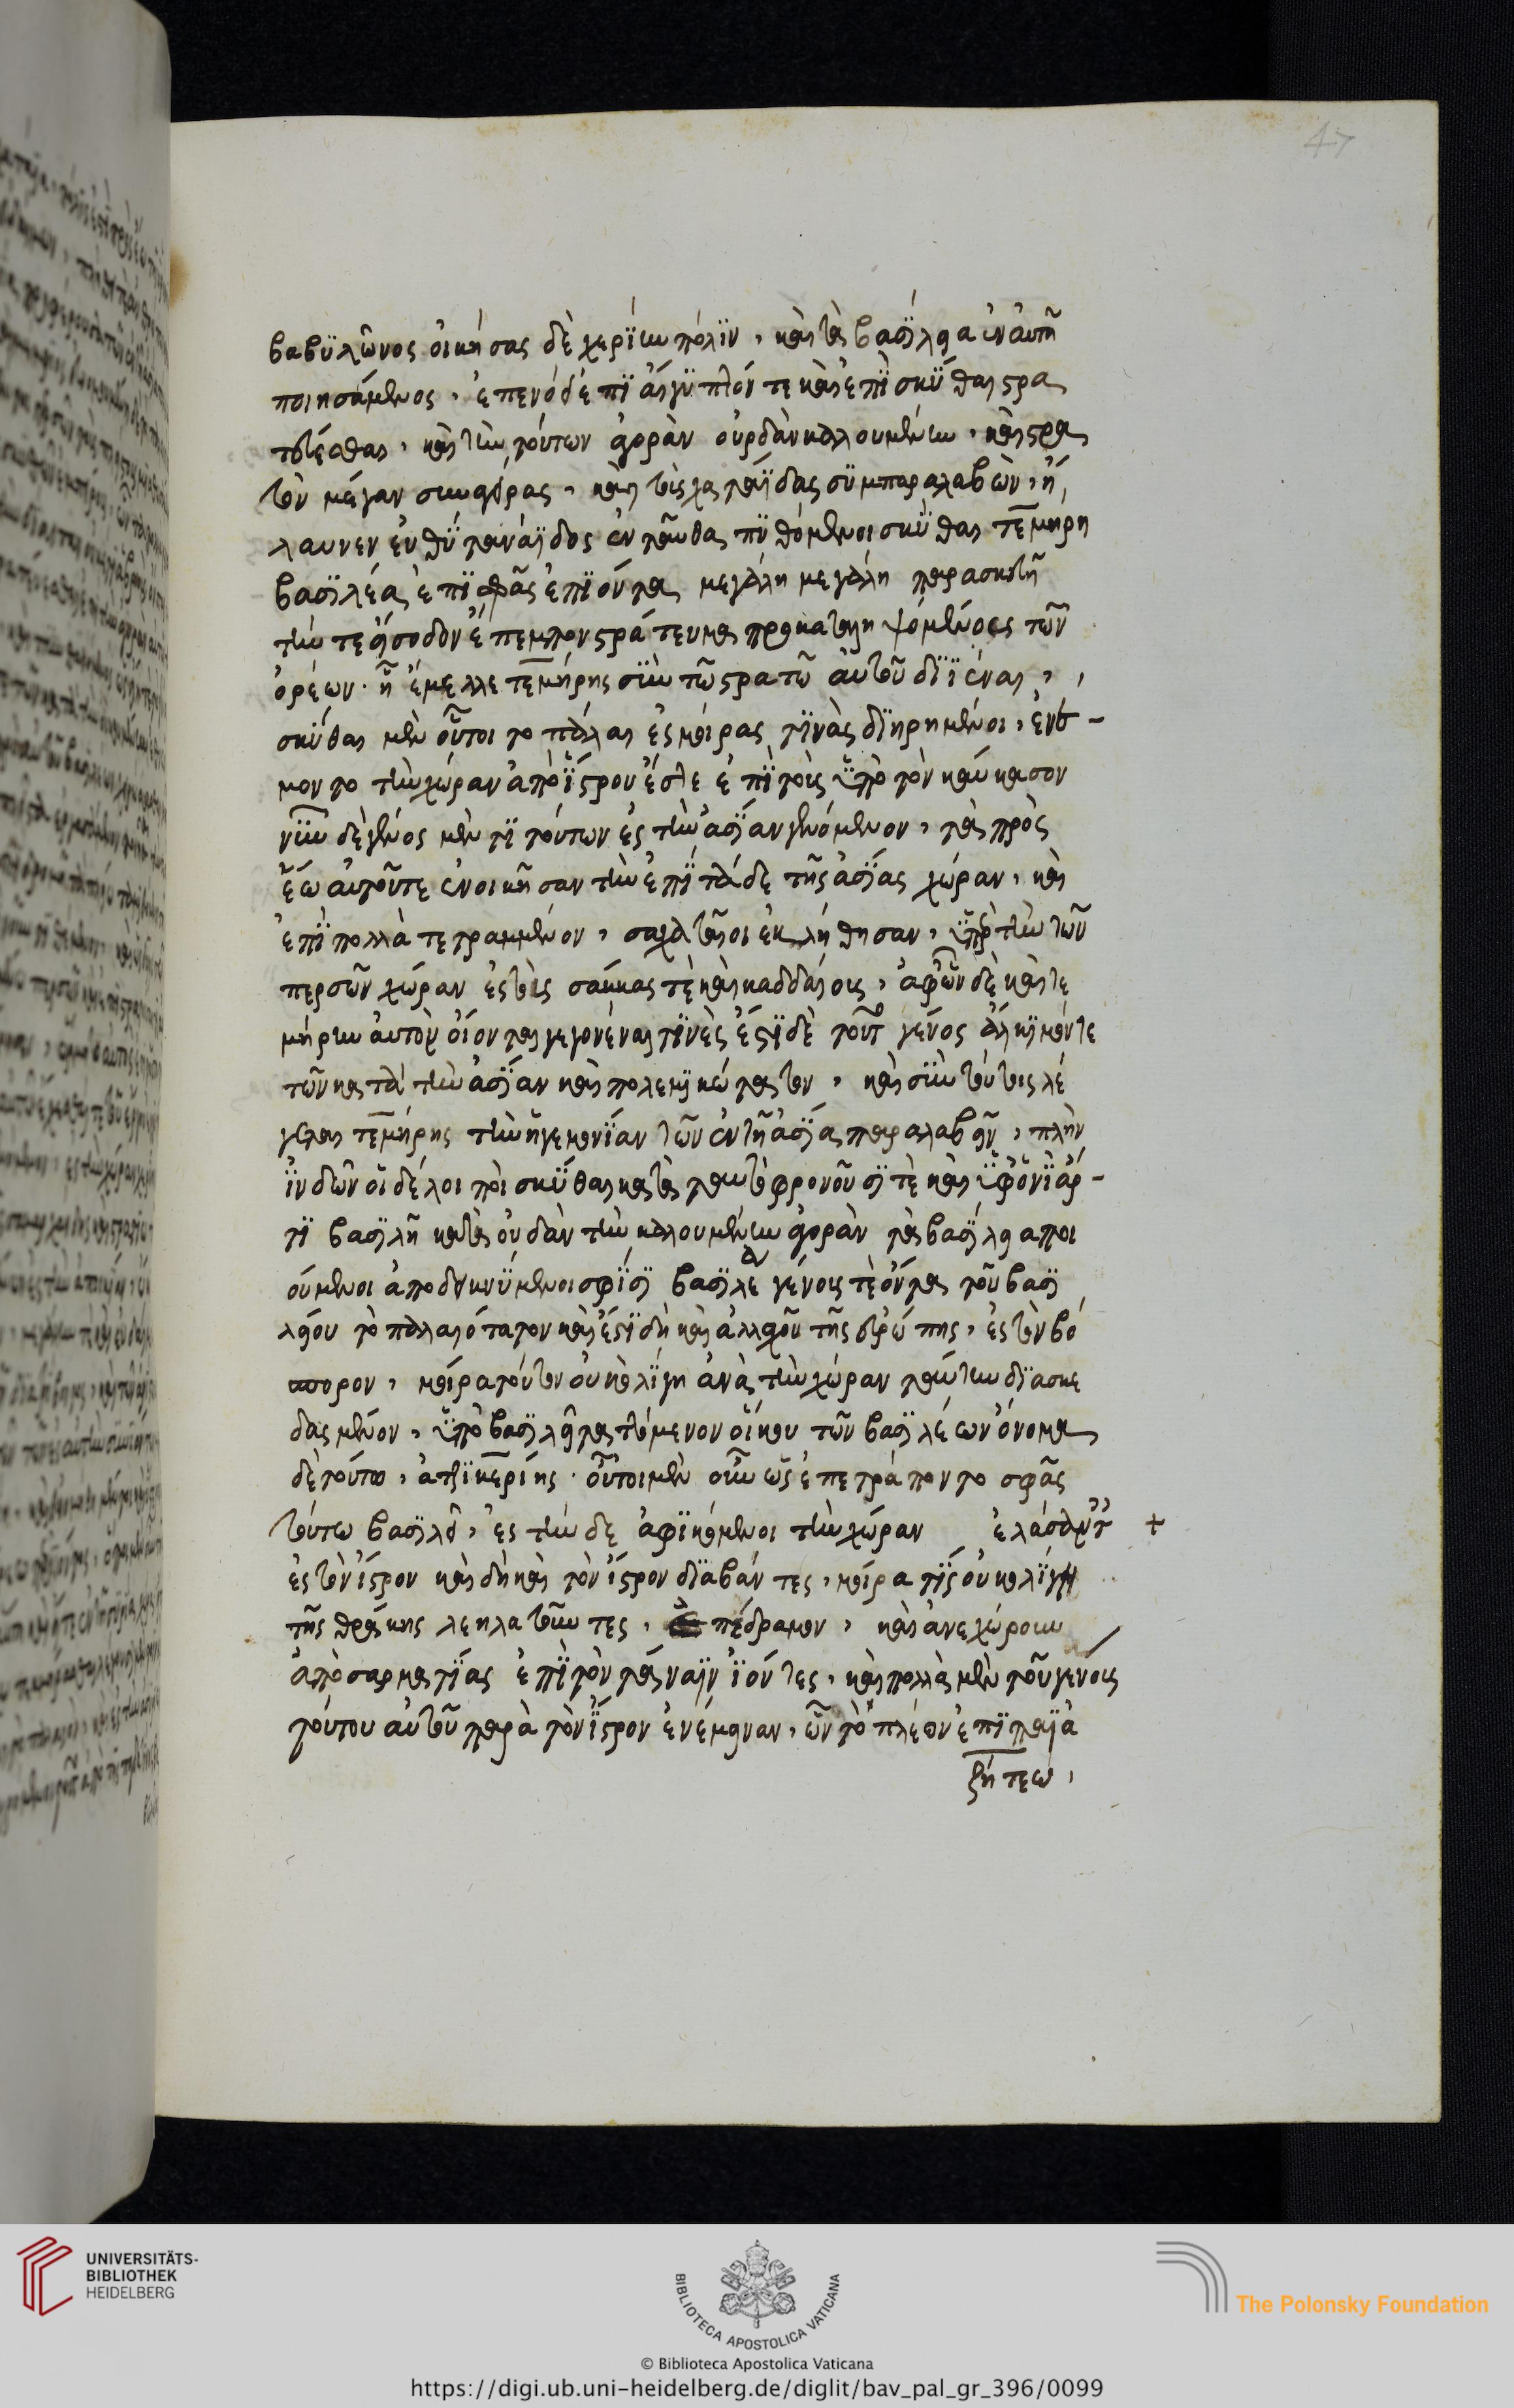 47
βαβϋλῶνος οἰκήσας δὲ χερίην πόλϊν, καὶ τὰ βασίλεια ἐν αὐτῇ
ποιησάμενος, ἐπενόει δ᾽ ἐπῒ αἴγϋπτόν τε καὶ ἐπῒ σκΰθας στρα
τεύεσθαι, καὶ τὴν τούτων ἀγορὰν οὐρδὰν καλουμένην, καὶ στρα
τὸν μέγαν συναγείρας, καὶ τοὺς χαταΐδας συμπαραλαβὼν, ἤ
λαυνεν εὐθὺ ταναΐδος ἐνταῦθα πϋθόμενοι σκΰθαι τεμήρη
βασιλέα ἐπῒ σφᾶς ἐπϊόντα μεγάλη μεγάλη παρασκευῇ
τήν τε εἴσοδον ἔπεμπον στράτευμα προκαταληψόμενος τῶν
ὀρέων. ᾗ ἔμελλε τεμήρης σὺν τῷ στρατῷ αὐτοῦ διϊέναι,
σκΰθαι μὲν οὗτοι το πάλαι ἐς μοίρας τϊνὰς δϊῃρημένοι, ἐνέ-
μοντο τὴν χώραν ἀπὸ ἴστρου ἔστε ἐπῒ τοὺς ὑπὸ τὸν καύκασον
νῦν δὲ γένος μέν τι τούτων ἐς τὴν ἀσίαν γενόμενον, τὰ πρὸς
ἕω αὐτοῦ τε ἐνοικῆσαν τὴν ἐπῒ τάδε τῆς ἀσίας χώραν, καὶ
ἐπῒ πολλὰ τετραμμένον, σαχαταῖοι ἐκλήθησαν, ὑπὲρ τὴν τῶν
περσῶν χώραν ἐς τοὺς σάκκας τε καὶ καδδαίους, ἀφ᾽ ὧν δὲ καὶ τε
μήρην αὐτὸν οἴονται γεγονέναι τϊνές ἔστϊ δὲ τοῦτο γένος ἀλκιμόντε
τῶν κατὰ τὴν ἀσΐαν καὶ πολεμϊκώτατον, καὶ σὺν τούτοις λέ
γεται τεμήρης τὴν ἡγεμονΐαν τῶν ἐν τῇ ἀσίᾳ παραλαβεῖν, πλὴν
ἰνδῶν οἱ δέ λοιποὶ σκύθαι κατὰ ταυτὸ φρονοῦσϊ τε καὶ ὑφ᾽ ἑνὶ ἄρ-
τϊ βασιλεῖ κατὰ οὐδὰν τὴν καλουμένην ἀγορὰν τὰ βασίλεια ποι
ούμενοι ἀποδεικνΰμενοι σφΐσϊ βασιλέα γένους τε ὄντα τοῦ βασι
λείου τὸ παλαιότατον καὶ ἔστϊ δὴ καὶ ἀλλαχοῦ τῆς εὐρώπης, ἐς τὸν βό
σπορον, μοῖρα τούτου οὐκ ὀλΐγη ἀνὰ τὴν χώραν ταύτην δϊασκε
δασμένον, ὑπὸ βασιλεῖ ταττόμενον οἴκου τῶν βασιλέων ὄνομα
δὲ τούτω, ἀτζϊκερίης. οὗτοι μὲν οὖν ὡς ἐπετράποντο σφᾶς
τούτω βασιλεῖ, ἐς τήν δε ἀφϊκόμενοι τὴν χώραν +
ἐς τὸν ἴστρον καὶ δὴ καὶ τὸν ἴστρον δϊαβάντες, μοῖρα τϊς οὐκ ὀλΐγη
τῆς θράκης ληλατοῦντες, ἐπέδραμον, καὶ ἀνεχώρουν
ἀπὸ σαρματΐας ἐπῒ τὸν τάναϊν ἰόντες, καὶ πολλὰ μὲν τοῦ γένους
τούτου αὐτοῦ παρὰ τὸν ἴστρον ἐνέμειναν, ὧν τὸ πλέον ἐπῒ παϊα
ζήτεω,
UNIVERSITÄTS-
BIBLIOTHEK
HEIDELBERG
BIBLIOTECA APOSTOLICA VATICANA
The Polonsky Foundation
© Biblioteca Apostolica Vaticana
https://digi.ub.uni-heidelberg.de/diglit/bav_pal_gr_396/0099